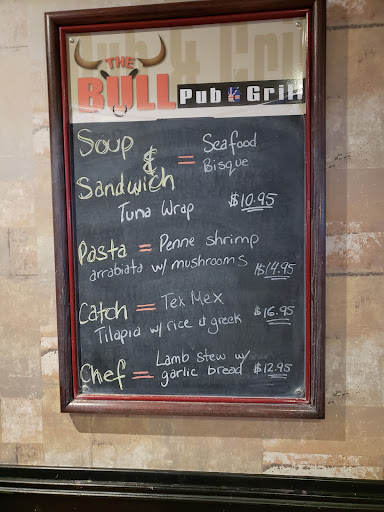 THE
BULL
Pub & Grill
Soup & = Seafood
Bisque
Sandwich
Tuna Wrap $10.95
Pasta = Penne shrimp
arrabiata w/ mushrooms $14.95
Catch = Tex Mex
Tilapia w/ rice & greek $16.95
Chef = Lamb stew w/
garlic bread $12.95